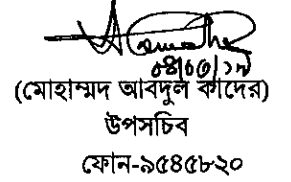 ০৪/০৩/১৮
(মোহাম্মদ আবদুল কাদের)
উপসচিব
ফোন-৯৫৪৫৮২০